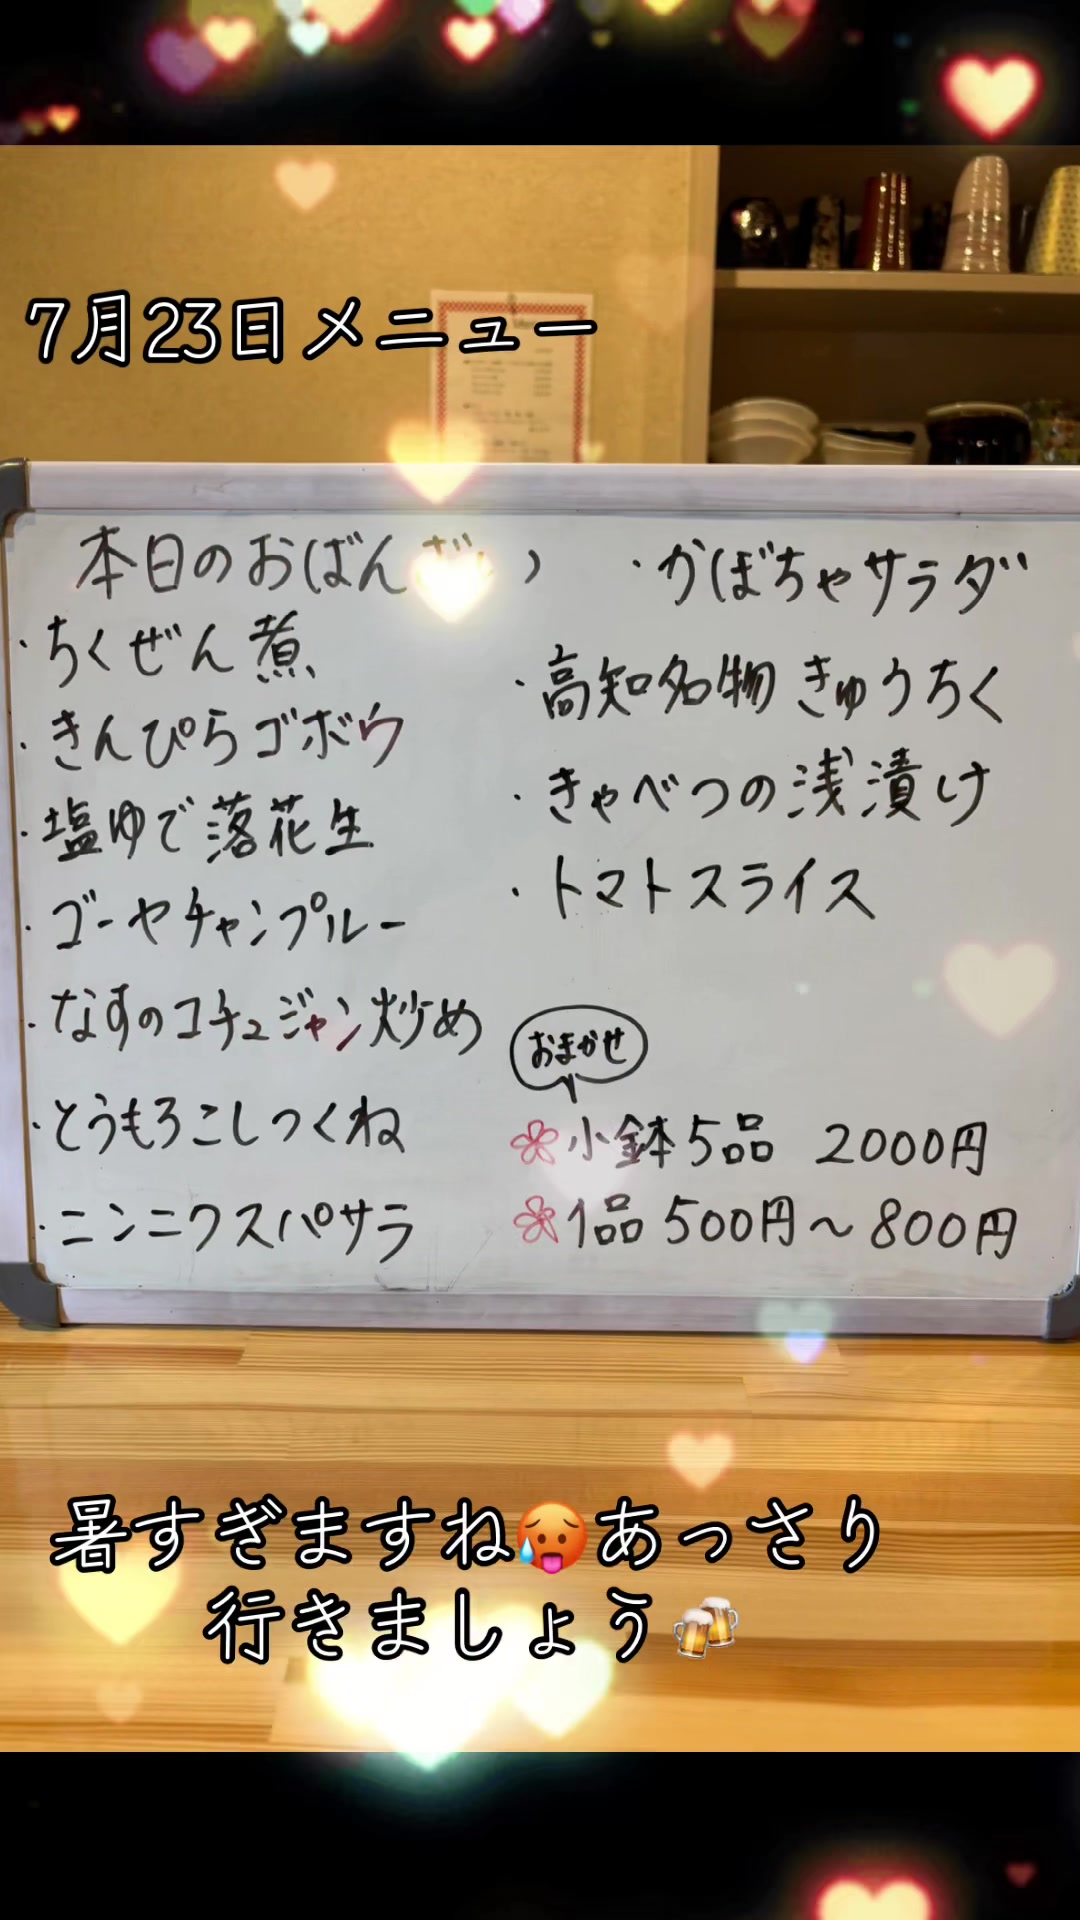 7月23日メニュー
本日のおばんざい
・ちくぜん煮
・きんぴらゴボウ
・塩ゆで落花生
・ゴーヤチャンプルー
・なすのコチュジャン炒め
・とうもろこしつくね
・ニンニクスパサラ
・かぼちゃサラダ
・高知名物きゅうちく
・きゃべつの浅漬け
・トマトスライス
おまかせ
小鉢5品 2000円
1品 500円～800円
暑すぎますね🥵あっさり
行きましょう🍻